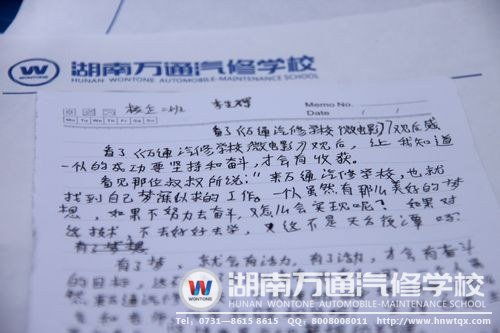 湖南万通汽修学校
HUNAN WONTONE AUTOMOBILE-MAINTENANCE SCHOOL
Memo No.
Mo Tu We Th Fr Sa Su
Date / /
看了《万通汽修学校微电影》观后感
看了《万通汽修学校微电影》观后, 让我知道
一个人的成功要坚持和奋斗,才会有收获。
看见那位叔叔所说:"来万通汽修学校,也就
找到自己梦寐以求的工作。一个人虽然有那么美好的梦
想,如果不努力去奋斗,又怎么会实现呢?如果对
技术,不去好好去学,又
有了梦想
有了梦,就会有活力,有了活力,才会有奋斗
的目标,
湖南万通汽修学校
HUNAN WONTONE AUTOMOBILE-MAINTENANCE SCHOOL
Tel:0731—8615 8615 QQ:8008008011 Http://www.hnwtqx.com